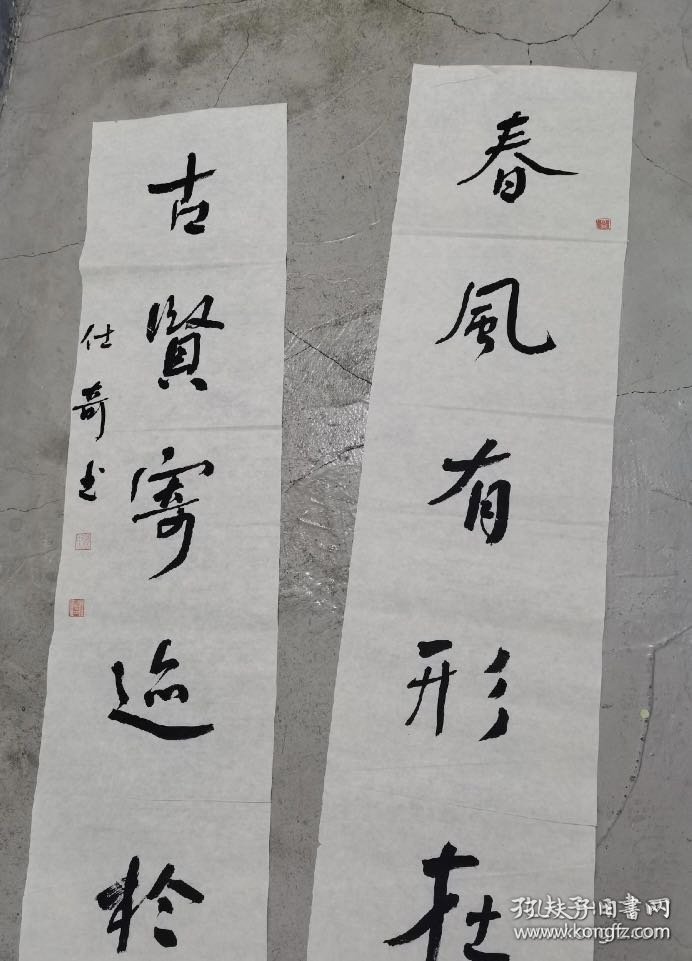 春風有形在
古賢寄迹於
仕奇书
孔夫子旧書网
www.kongfz.com